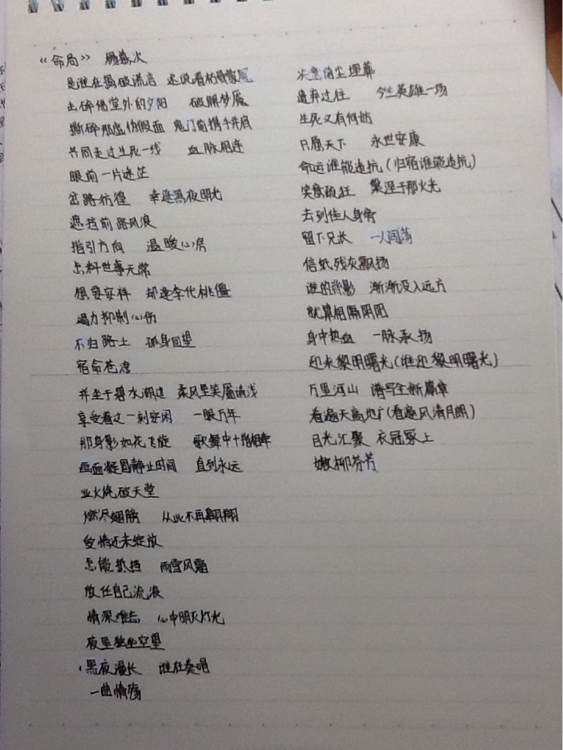 《命局》 杨慕次
是谁在揭破谎言 述说着 
击碎佛堂外的夕阳 破眼梦魇
撕碎那虚伪假面 鬼门前携手并肩
共同走过生死一线 血脉相连
眼前一片迷茫
岔路彷徨 幸逢黑夜明光
遮挡前路风浪
指引方向 温暖心房
怎料世事无常
想要安祥 却逢李代桃僵
竭力抑制心伤
不归路上 孤身回望
宿命苍凉
并坐于碧水湖边 柔风里笑靥清浅
享受着这一刻安闲 一眼万年
那身影如花飞旋 歌舞中十指相牵
画面凝固静止时间 直到永远
业火烧破天堂
燃尽翅膀 从此不再翱翔
爱情还未绽放
怎能抵挡 雨雪风霜
放任自己流浪
情深难忘 心中明灭灯光
夜里独坐空望
黑夜漫长 谁在奏唱
一曲情殇
尘埋葬
遗弃过往 今生英雄一场
生死又有何妨
只愿天下 永世安康
命运谁能违抗(归宿谁能违抗)
笑容疯狂 聚涅于那火光
去到佳人身旁
留下兄长 一人闯荡
信纸残灰飘扬
谁的背影 渐渐没入远方
就算相隔阴阳
身中热血 一脉承扬
迎来黎明曙光(谁迎黎明曙光)
万里河山 谱写全新篇章
看遍天高地广(看遍风清月朗)
目光汇聚 衣冠冢上
嫩柳芬芳